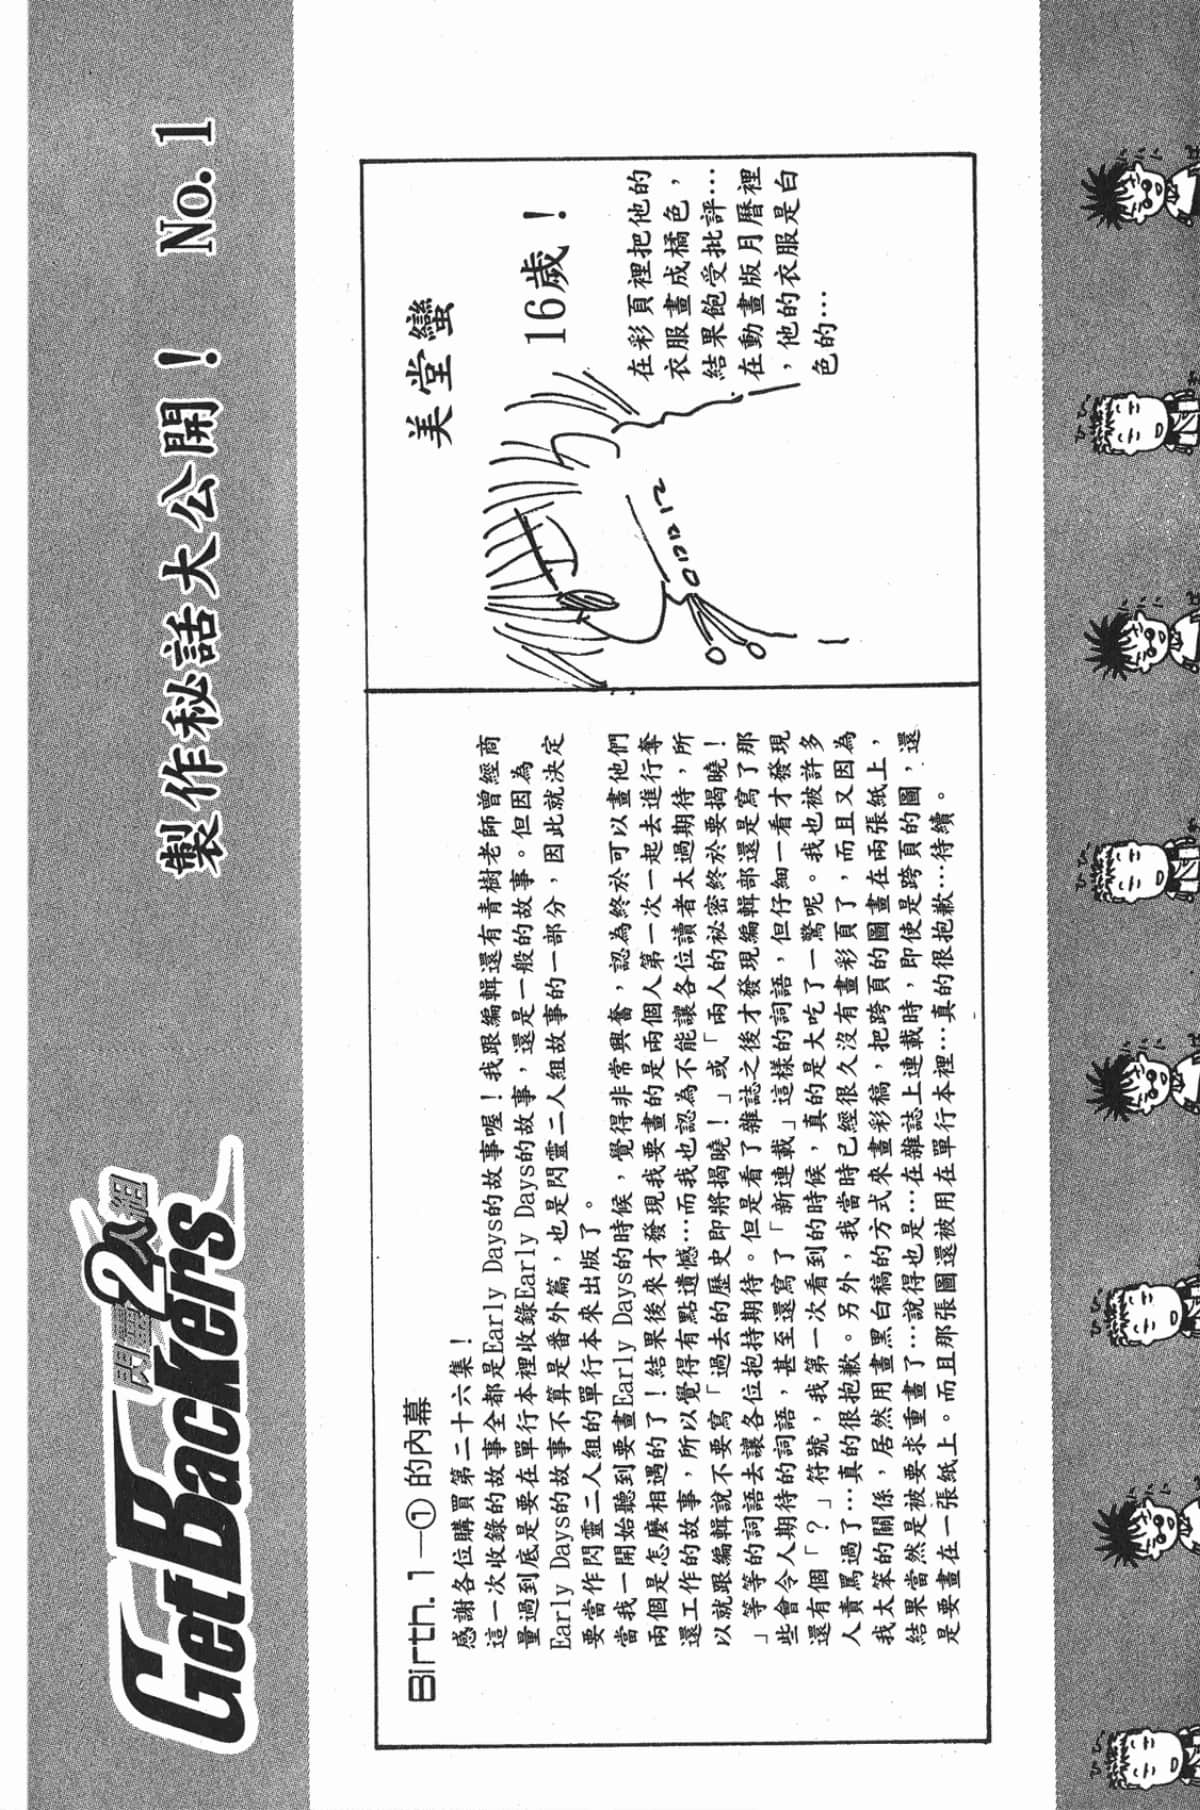 閃靈2人組
GetBackers
製作秘話大公開! No.1
Birth.1—①的內幕
感謝各位購買第二十六集!
這一次收錄的故事全都是Early Days的故事喔!我跟編輯還有青樹老師曾經商
量過到底是要在單行本裡收錄Early Days的故事,還是一般的故事。但因為
Early Days的故事不算是番外篇,也是閃靈二人組故事的一部分,因此就決定
要當作閃靈二人組的單行本來出版了。
當我一開始聽到要畫Early Days的時候,覺得非常興奮,認為終於可以畫他們
兩個是怎麼相遇的了!結果後來才發現我要畫的是兩個人第一次一起去進行奪
還工作的故事,所以覺得有點遺憾…而我也認為不能讓各位讀者太過期待,所
以就跟編輯說不要寫「過去的歷史即將揭曉!」或「兩人的祕密終於要揭曉!
」等等的詞語去讓各位抱持期待。但是看了雜誌之後才發現編輯部還是寫了那
些會令人期待的詞語,甚至還寫了「新連載」這樣的詞語,但仔細一看才發現
還有個「?」符號,我第一次看到的時候,真的是大吃了一驚呢。我也被許多
人責罵過了…真的很抱歉。另外,我當時已經很久沒有畫彩頁了,而且又因為
我太笨的關係,居然用畫黑白稿的方式來畫彩稿,把跨頁的圖畫在兩張紙上,
結果當然是被要求重畫了…說得也是…在雜誌上連載時,即使是跨頁的圖,還
是要畫在一張紙上。而且那張圖還被用在單行本裡…真的很抱歉…待續。
美堂蠻
16歲!
在彩頁裡把他的
衣服畫成橘色,
結果飽受批評…
在動畫版月曆裡
,他的衣服是白
色的…